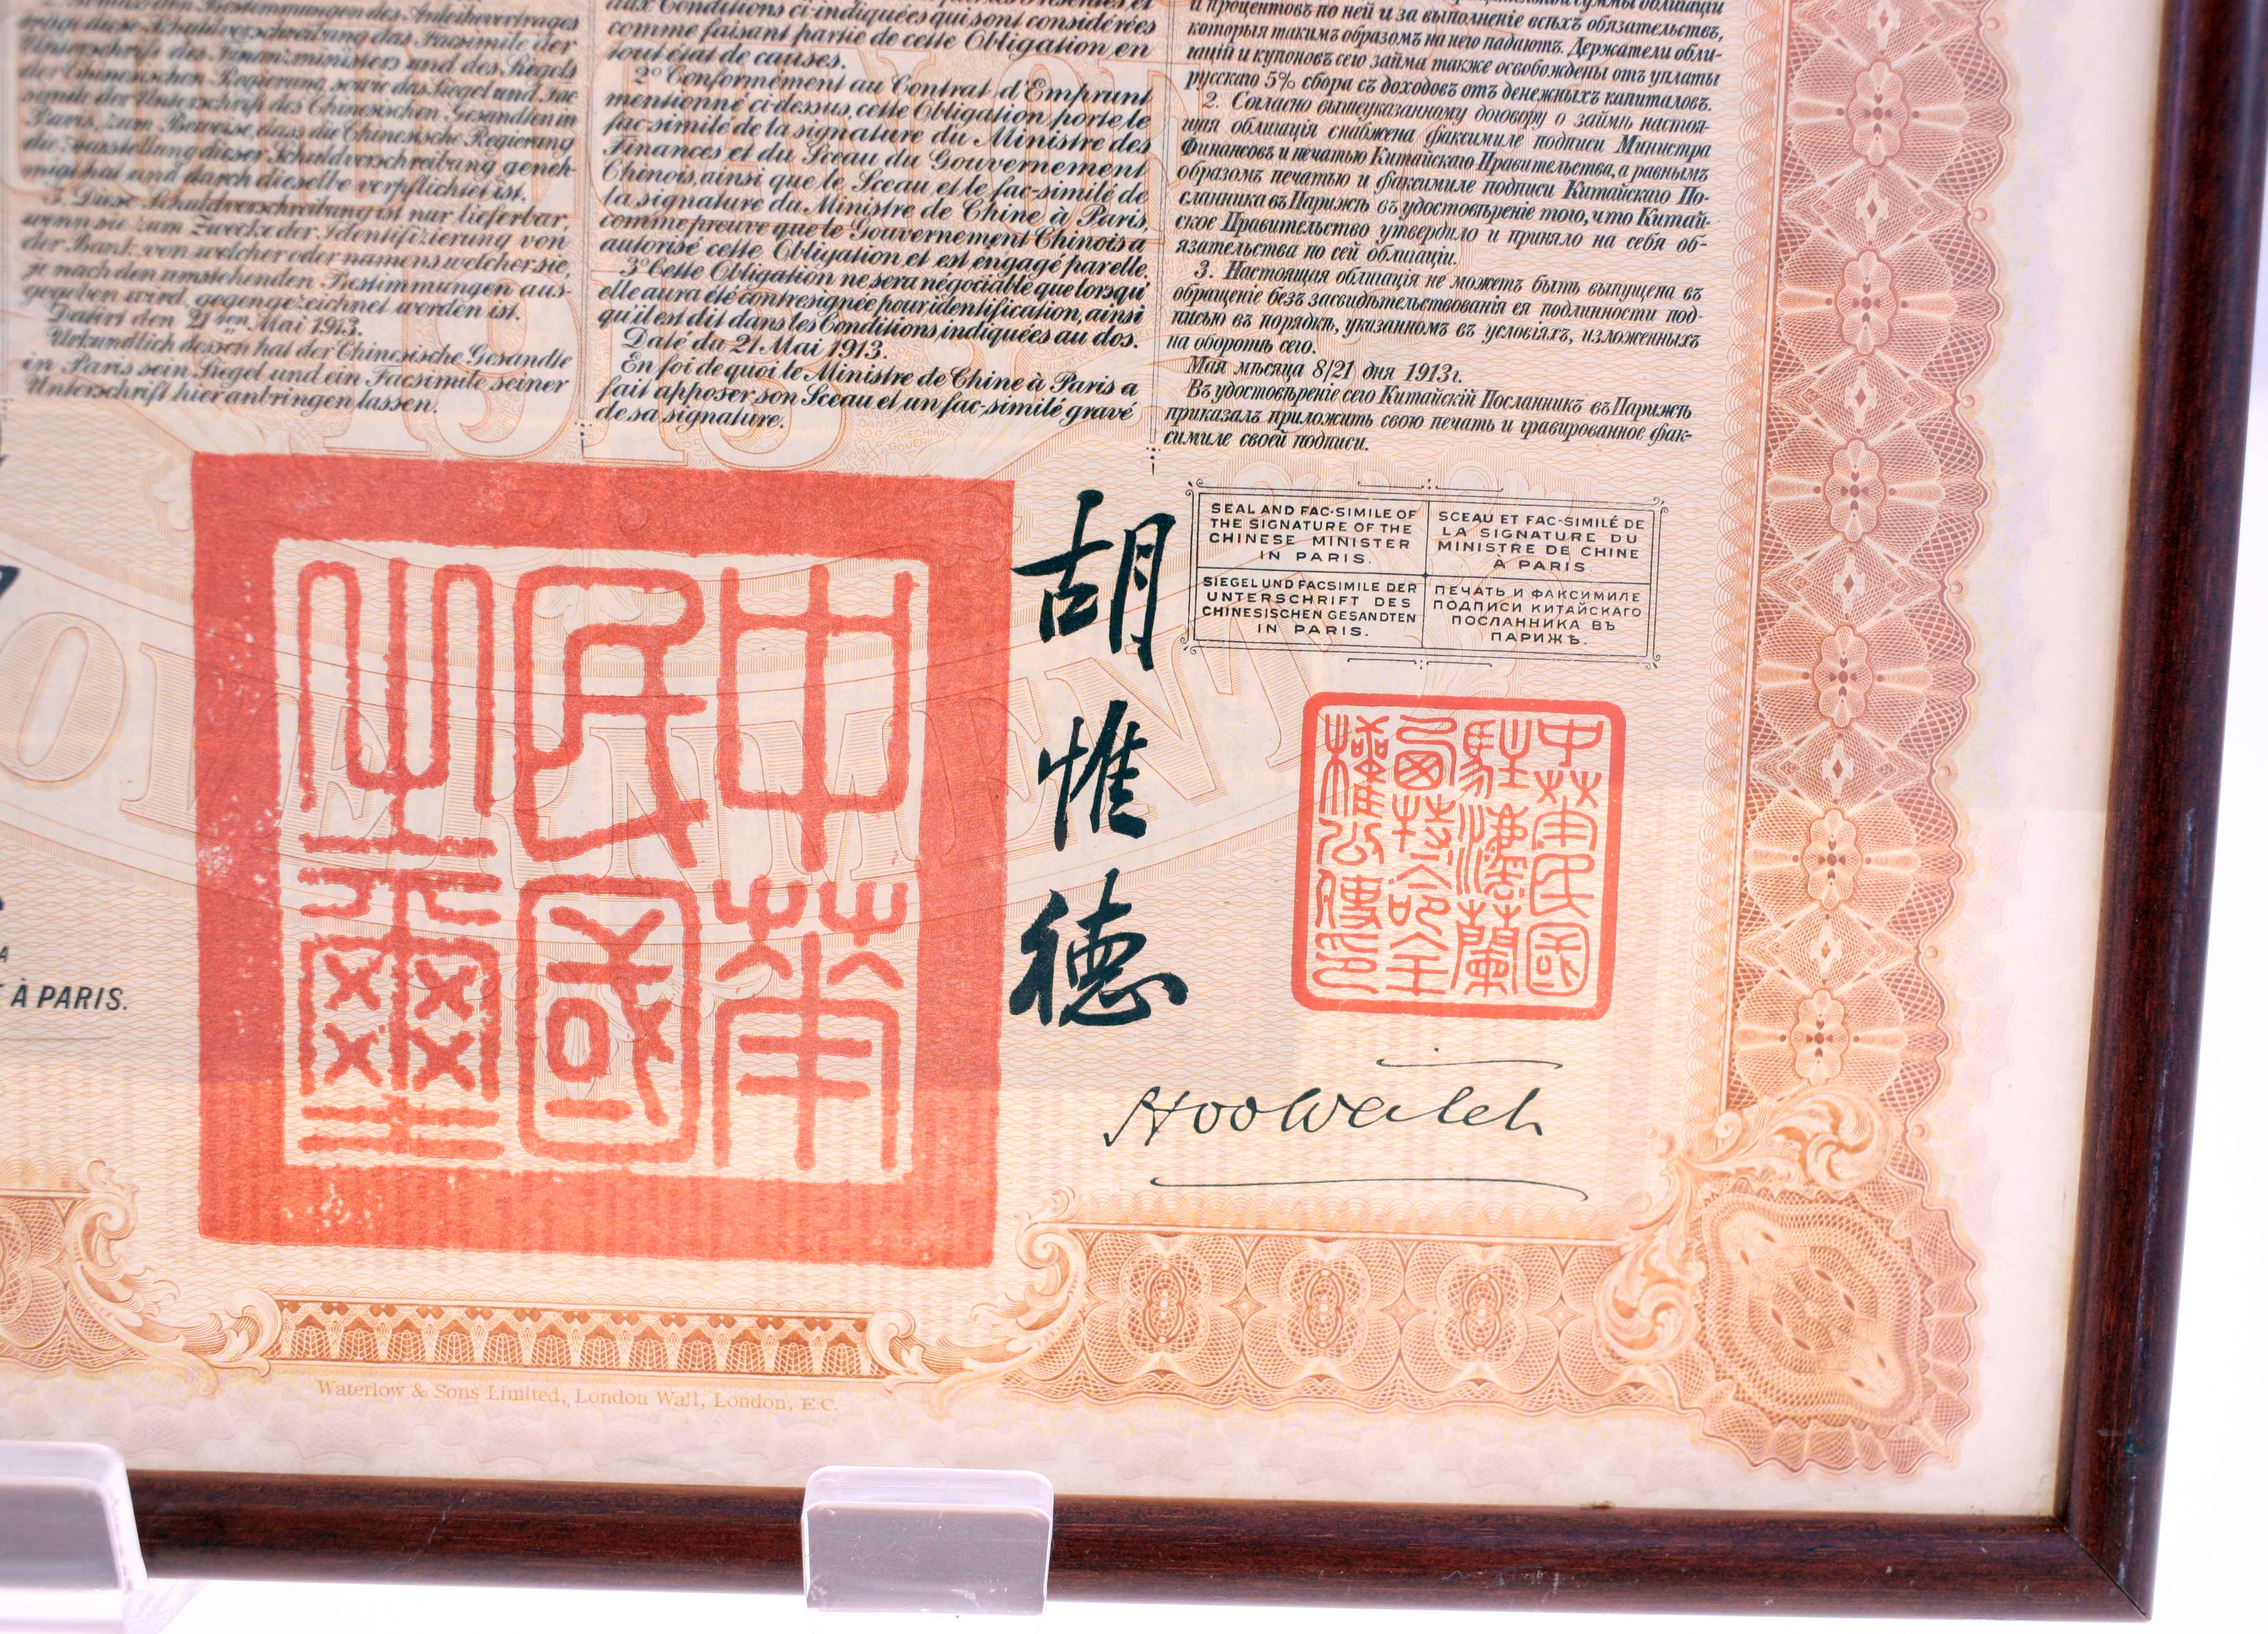 Unterschrift des Finanzministers und des Siegels
der Chinesischen Regierung, sowie das Siegel und Fac-
simile der Unterschrift des Chinesischen Gesandten in
Paris, zum Beweise, dass die Chinesische Regierung
die Ausstellung dieser Schuldverschreibung geneh-
migt hat und durch dieselbe verpflichtet ist.
3. Diese Schuldverschreibung ist nur lieferbar,
wenn sie zum Zwecke der Identifizierung von
der Bank, von welcher oder namens welcher sie,
je nach den umstehenden Bestimmungen aus-
gegeben wird, gegengezeichnet worden ist.
Datirt den 21ten Mai 1913.
Urkundlich dessen hat der Chinesische Gesandte
in Paris sein Siegel und ein Facsimile seiner
Unterschrift hier anbringen lassen.
aux Conditions ci-indiquées qui sont considérées
comme faisant partie de cette Obligation en
tout état de causes.
2º Conformément au Contrat d'Emprunt
mentionné ci-dessus, cette Obligation porte le
fac-similé de la signature du Ministre des
Finances et du Sceau du Gouvernement
Chinois, ainsi que le Sceau et le fac-similé de
la signature du Ministre de Chine à Paris,
comme preuve que le Gouvernement Chinois a
autorisé cette Obligation et est engagé par elle.
3º Cette Obligation ne sera négociable que lorsqu'
elle aura été contresignée pour identification, ainsi
qu'il est dit dans les Conditions indiquées au dos.
Daté du 21 Mai 1913.
En foi de quoi le Ministre de Chine à Paris a
fait apposer son Sceau et un fac-similé gravé
de sa signature.
и процентовъ по ней и за выполненіе всѣхъ обязательствъ,
которыя такимъ образомъ на него падаютъ. Держатели обли-
гацій и купоновъ сего займа также освобождены отъ уплаты
русскаго 5% сбора съ доходовъ отъ денежныхъ капиталовъ.
2. Согласно вышеуказанному договору о займѣ настоя-
щая облигація снабжена факсимиле подписи Министра
Финансовъ и печатью Китайскаго Правительства, а равнымъ
образомъ печатью и факсимиле подписи Китайскаго По-
сланника въ Парижѣ въ удостовѣреніе того, что Китай-
ское Правительство утвердило и приняло на себя об-
язательства по сей облигаціи.
3. Настоящая облигація не можетъ быть выпущена въ
обращеніе безъ засвидѣтельствованія ея подлинности под-
писью въ порядкѣ, указанномъ въ условіяхъ, изложенныхъ
на оборотѣ сего.
Мая мѣсяца 8/21 дня 1913г.
Въ удостовѣреніе сего Китайскій Посланникъ въ Парижѣ
приказалъ приложить свою печать и гравированное фак-
симиле своей подписи.
1913
GOVERNMENT
À PARIS.
中華
民國
之璽
胡惟德
SEAL AND FAC-SIMILE OF
THE SIGNATURE OF THE
CHINESE MINISTER
IN PARIS.
SCEAU ET FAC-SIMILÉ DE
LA SIGNATURE DU
MINISTRE DE CHINE
À PARIS
SIEGEL UND FACSIMILE DER
UNTERSCHRIFT DES
CHINESISCHEN GESANDTEN
IN PARIS.
ПЕЧАТЬ И ФАКСИМИЛЕ
ПОДПИСИ КИТАЙСКАГО
ПОСЛАННИКА ВЪ
ПАРИЖѢ.
中華民國
Hoo Wei Teh
Waterlow & Sons Limited, London Wall, London, E.C.